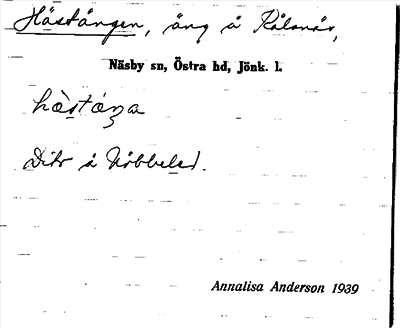 Hästängen, äng å Rålsnäs,
Näsby sn, Östra hd, Jönk. l.
Dito å Nöbbeled.
Annalisa Anderson 1939